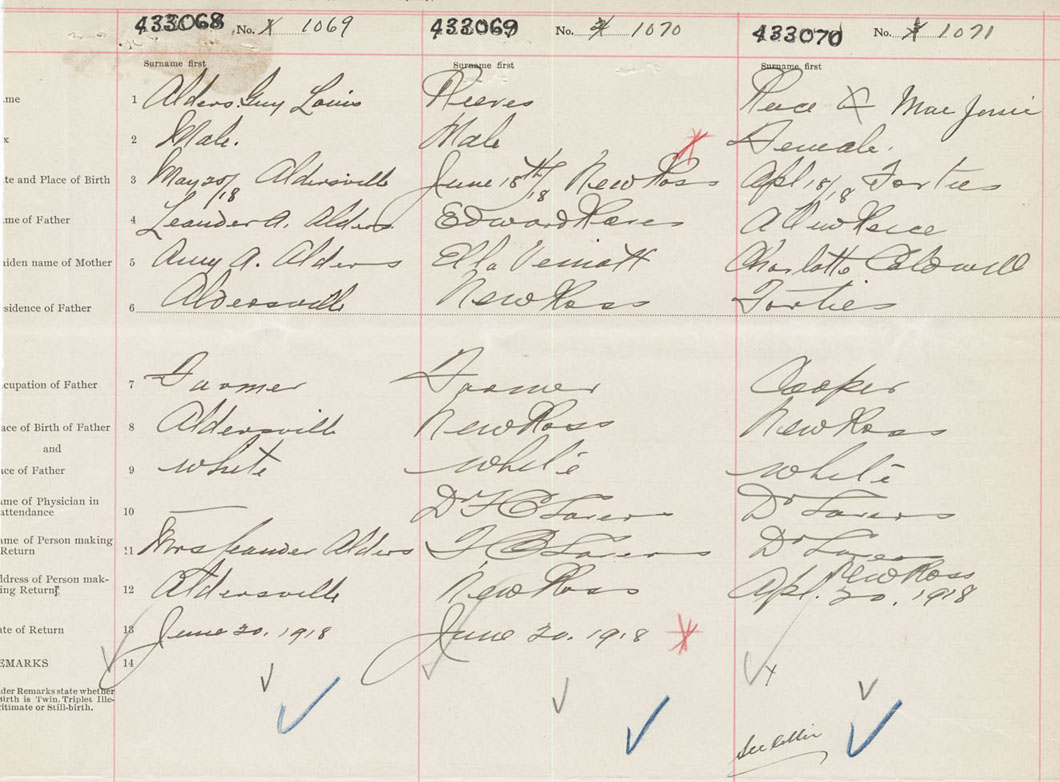 433068 No. 1069 433069 No. 1070 433070 No. 1071
Surname first Surname first Surname first
me 1 Alders Guy Louis Reeves Mae
x 2 Male. Male Female.
te and Place of Birth 3 May 20/18 Aldersville June 18th/18 New Ross Apl 18/18 Forties
me of Father 4 Leander A. Alders Edward
aiden name of Mother 5 Amy A. Alders Ella Veinott Charlotte Caldwell
sidence of Father 6 Aldersville New Ross Forties
cupation of Father 7 Farmer Farmer Cooper
ace of Birth of Father 8 Aldersville New Ross New Ross
and
ce of Father 9 White White White
ame of Physician in attendance 10 — Dr Dr
ame of Person making Return 11 Mrs Leander Alders Dr
ddress of Person mak-ing Return 12 Aldersville New Ross New Ross
ate of Return 13 June 20. 1918 June 20. 1918 Apl. 20. 1918
EMARKS 14
der Remarks state whether
Birth is Twin, Triplet Ille-
gitimate or Still-birth.
See